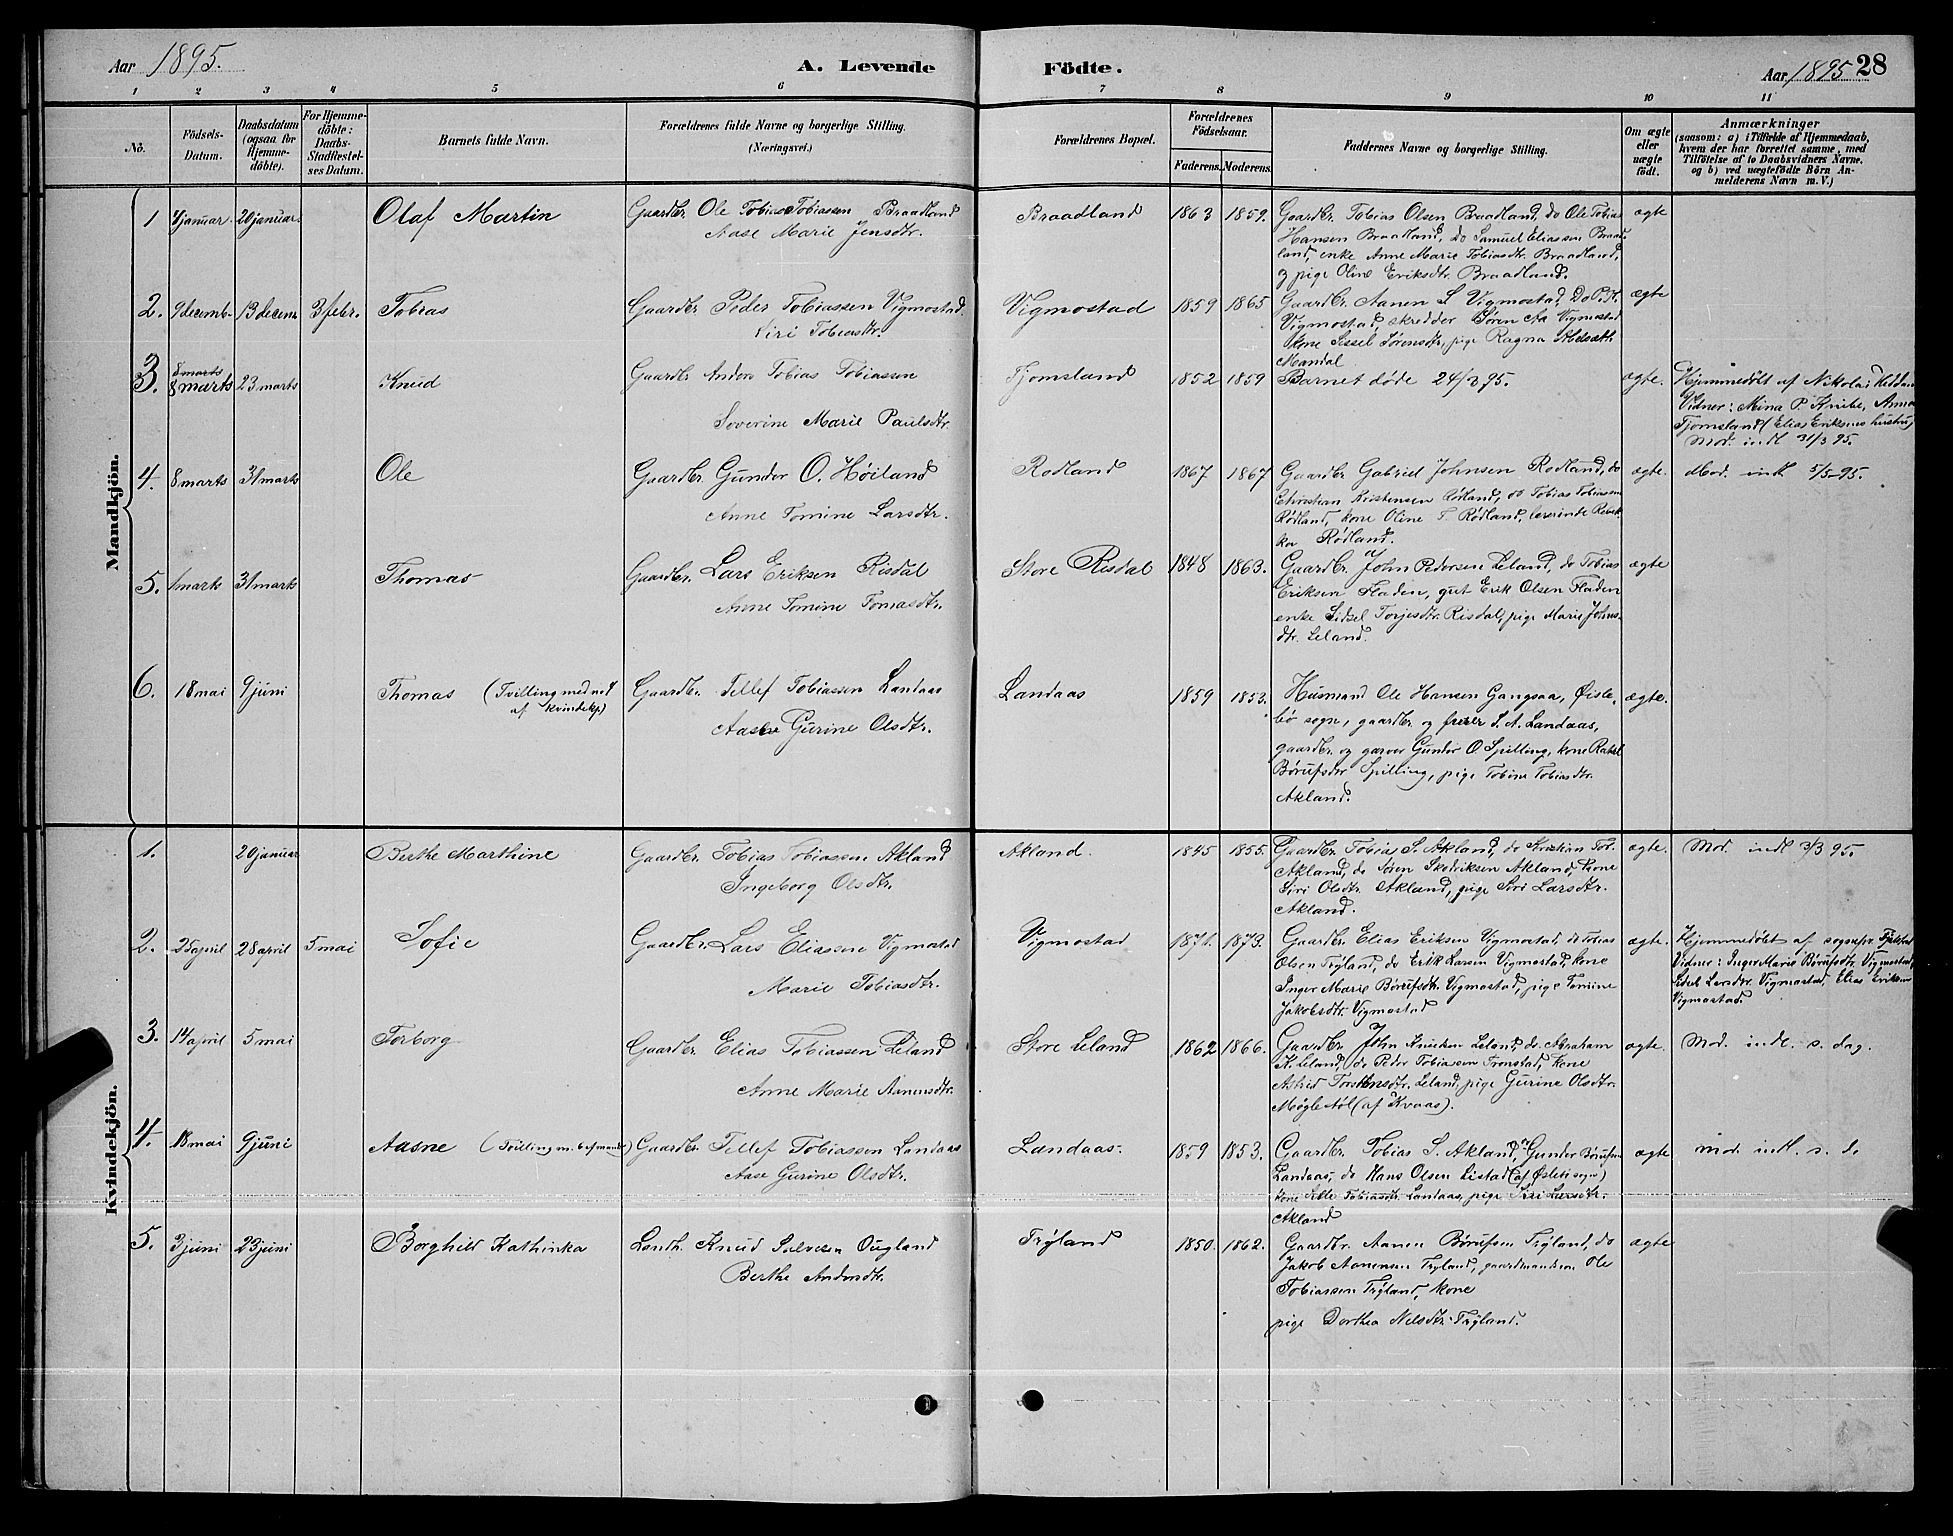 Aar 1895.
A. Levende Födte.
Aar 1895 28
1 2 3 4 5 6 7 8 9 10 11
Nô.
Födsels-
Datum.
Daabsdatum
(ogsaa for
Hjemme-
döbte).
For Hjemme-
döbte:
Daabs-
Stadfæstel-
ses Datum.
Barnets fulde Navn.
Forældrenes fulde Navne og borgerlige Stilling.
(Næringsvei.)
Forældrenes Bopæl.
Forældrenes
Födselsaar.
Faderens. Moderens.
Faddernes Navne og borgerlige Stilling.
Om ægte
eller
uægte
födt.
Anmærkninger
(saasom: a) i Tilfælde af Hjemmedaab,
hvem der har forrettet samme, med
Tilföielse af to Daabsvidners Navne,
og b) ved uægtefödte Börn An-
melderens Navn m. V.)
Mandkjön.
1 4 januar. 20 januar. Olaf Martin
Gaardbr. Ole Tobias Tobiassen Braadland
Aase Marie Jensdtr.
Braadland 1863 1859.
Gaardbr. Tobias Olsen Braadland, do Ole Tobias
Hansen Braadland, do Samuel Eliassen Braad-
land, enke Anne Marie Tobiasdtr. Braadland,
og pige Oline Eriksdtr. Braadland.
ægte
2. 9 decemb. 13 decem. 3 febr. Tobias
Gaardbr. Peder Tobiassen Vigmostad
Siri Tobiasdtr.
Vigmostad 1859 1865
Gaardbr. Aanen S. Vigmostad, Do P. H.
Vigmostad, skredder Søren Aa Vigmostad
kone Sissel Sørensdtr., pige Ragna
Mandal
ægte
3. 8 marts
8 marts 23 marts Knud
Gaardbr Anders Tobias Tobiassen
Severine Marie Paulsdtr.
Tjomsland 1852 1859
Barnet døde 24/3 95.
ægte.
Hjemmedøbt af Nikolai
Vidner: Mina P. Knibe, Anna
Tjomsland (Elias Eriksens hustru)
Mod. indl 31/3 95.
4. 8 marts 31 marts Ole
Gaardbr Gunder O. Høiland
Anne Tomine Larsdtr.
Rødland 1867 1867
Gaardbr Gabriel Johnsen Rødland, do
Christian Kristensen Rødland, do Tobias Tobiassen
Rødland, kone Oline T. Rødland, lærerinde Rebek-
ka Rødland.
ægte.
Mod. indl 5/5 95.
5. 1 marts 31 marts Thomas
Gaardbr. Lars Eriksen Risdal
Anne Tomine Tomasdtr.
Store Risdal 1848 1863.
Gaardbr. John Pedersen Leland, do Tobias
Eriksen Fladen, gut Erik Olsen Fladen
enke Sidsel Torjesdtr. Risdal, pige Marie Johns-
dtr. Leland.
ægte
6. 18 mai 9 juni Thomas (Tvilling med no 4
af kvindekj)
Gaardbr. Tellef Tobiassen Landaas
Aase Gurine Olsdtr.
Landaas 1859 1853.
Husmand Ole Hansen Gangsaa, Øisle-
bø sogn, gaardbr. og S. A. Landaas,
gaardbr. og garver Gunder O Spilling, kone Rakel
Børufsdtr Spilling, pige Tobine Tobiasdtr.
Akland.
ægte.
Kvindekjön.
1. 20 januar Berthe Marthine
Gaardbr. Tobias Tobiassen Akland
Ingeborg Olsdtr.
Akland. 1845 1855.
Gaardbr. Tobias S. Akland, do Kristian Tob.
Akland, do Søren Akland, kone
Siri Olsdtr Akland, pige Siri Larsdtr.
Akland.
ægte.
Mod. indl 3/3 95.
2. 25 april 28 april 5 mai Sofie
Gaardbr. Lars Eliassen Vigmostad
Marie Tobiasdtr.
Vigmostad 1871. 1873.
Gaardbr. Elias Eriksen Vigmostad, do Tobias
Olsen Trÿland, do Erik Larsen Vigmostad, kone
Inger Marie Børufsdtr. Vigmostad, pige Tomine
Jakobsdtr. Vigmostad
ægte.
Hjemmedøbt af sognepr.
Vidner: Inger Marie Børufsdtr. Vigmostad,
Sidsel Larsdtr. Vigmostad, Elias Eriksen
Vigmostad.
3. 14 april 5 mai Torborg
Gaardbr. Elias Tobiassen Leland
Anne Marie Aanensdtr.
Store Leland 1862 1866.
Gaardbr. John Knudsen Leland, do Abraham
K. Leland, do Peder Tobiassen Tronstad, kone
Astrid Torstensdtr. Leland, pige Gurine Olsdtr.
(af Kvaas).
ægte.
Mod. indl. s. dag.
4. 18 mai 9 juni Aasne (Tvilling m. 6 af mandk)
Gaardbr. Tellef Tobiassen Landaas
Aase Gurine Olsdtr.
Landaas. 1859 1853.
Gaardbr. Tobias S. Akland, do Gunder Børufsen
Landaas, do Hans Olsen Listad (af Øslebø sogn)
kone Tobiasdtr Landaas, pige Siri Larsdtr.
Akland
ægte
mod. indl. s. d.
5. 3 juni 23 juni Borghild Kathinka
Landh. Knud Salvesen Ougland
Berthe Andersdtr.
Trÿland 1850. 1862.
Gaardbr. Aanen Børufsen Trÿland, do
Jakob Aanensen Trÿland, gaardmandssøn Ole
Tobiassen Trÿland, kone
pige Dorthea Nilsdtr. Trÿland.
ægte